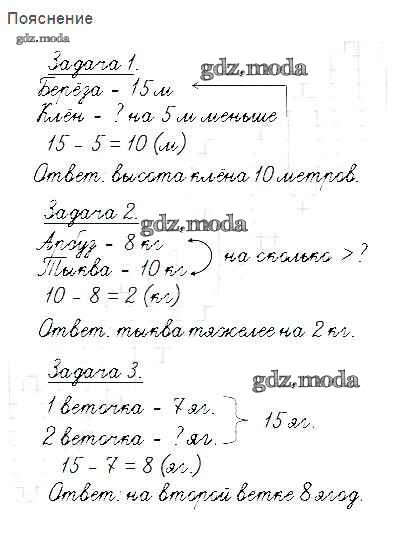 Пояснение
gdz.moda
Задача 1.
gdz.moda
Берёза - 15 м
Клён - ? на 5 м меньше
15 - 5 = 10 (м)
Ответ. высота клёна 10 метров.
Задача 2.
gdz.moda
Арбуз - 8 кг
на сколько > ?
Тыква - 10 кг
10 - 8 = 2 (кг)
Ответ. тыква тяжелее на 2 кг.
Задача 3.
gdz.moda
1 веточка - 7 яг.
15 яг.
2 веточка - ? яг.
15 - 7 = 8 (яг.)
Ответ: на второй ветке 8 ягод.